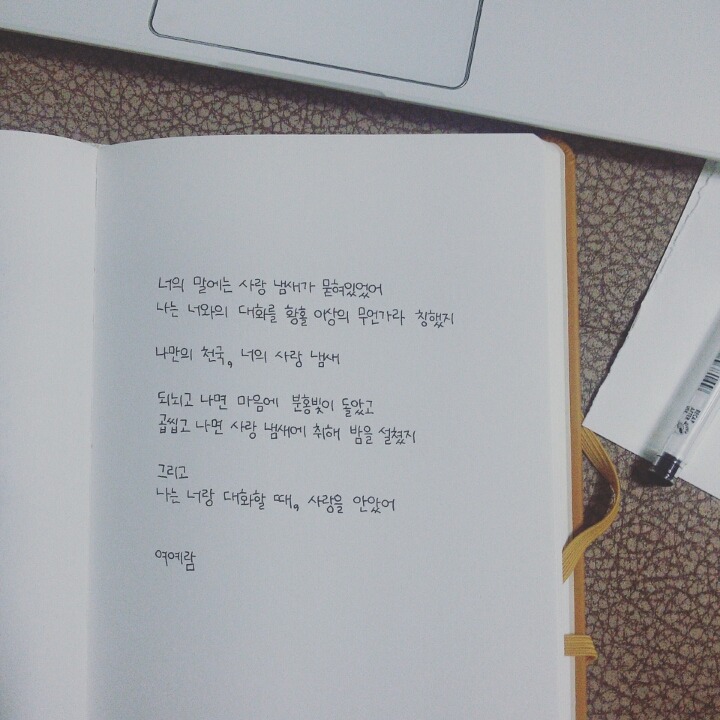 너의 말에는 사랑 냄새가 묻혀있었어
나는 너와의 대화를 황홀 이상의 무언가라 칭했지
나만의 천국, 너의 사랑 냄새
되뇌고 나면 마음에 분홍빛이 돌았고
곱씹고 나면 사랑 냄새에 취해 밤을 설쳤지
그리고
나는 너랑 대화할 때, 사랑을 안았어
여예람